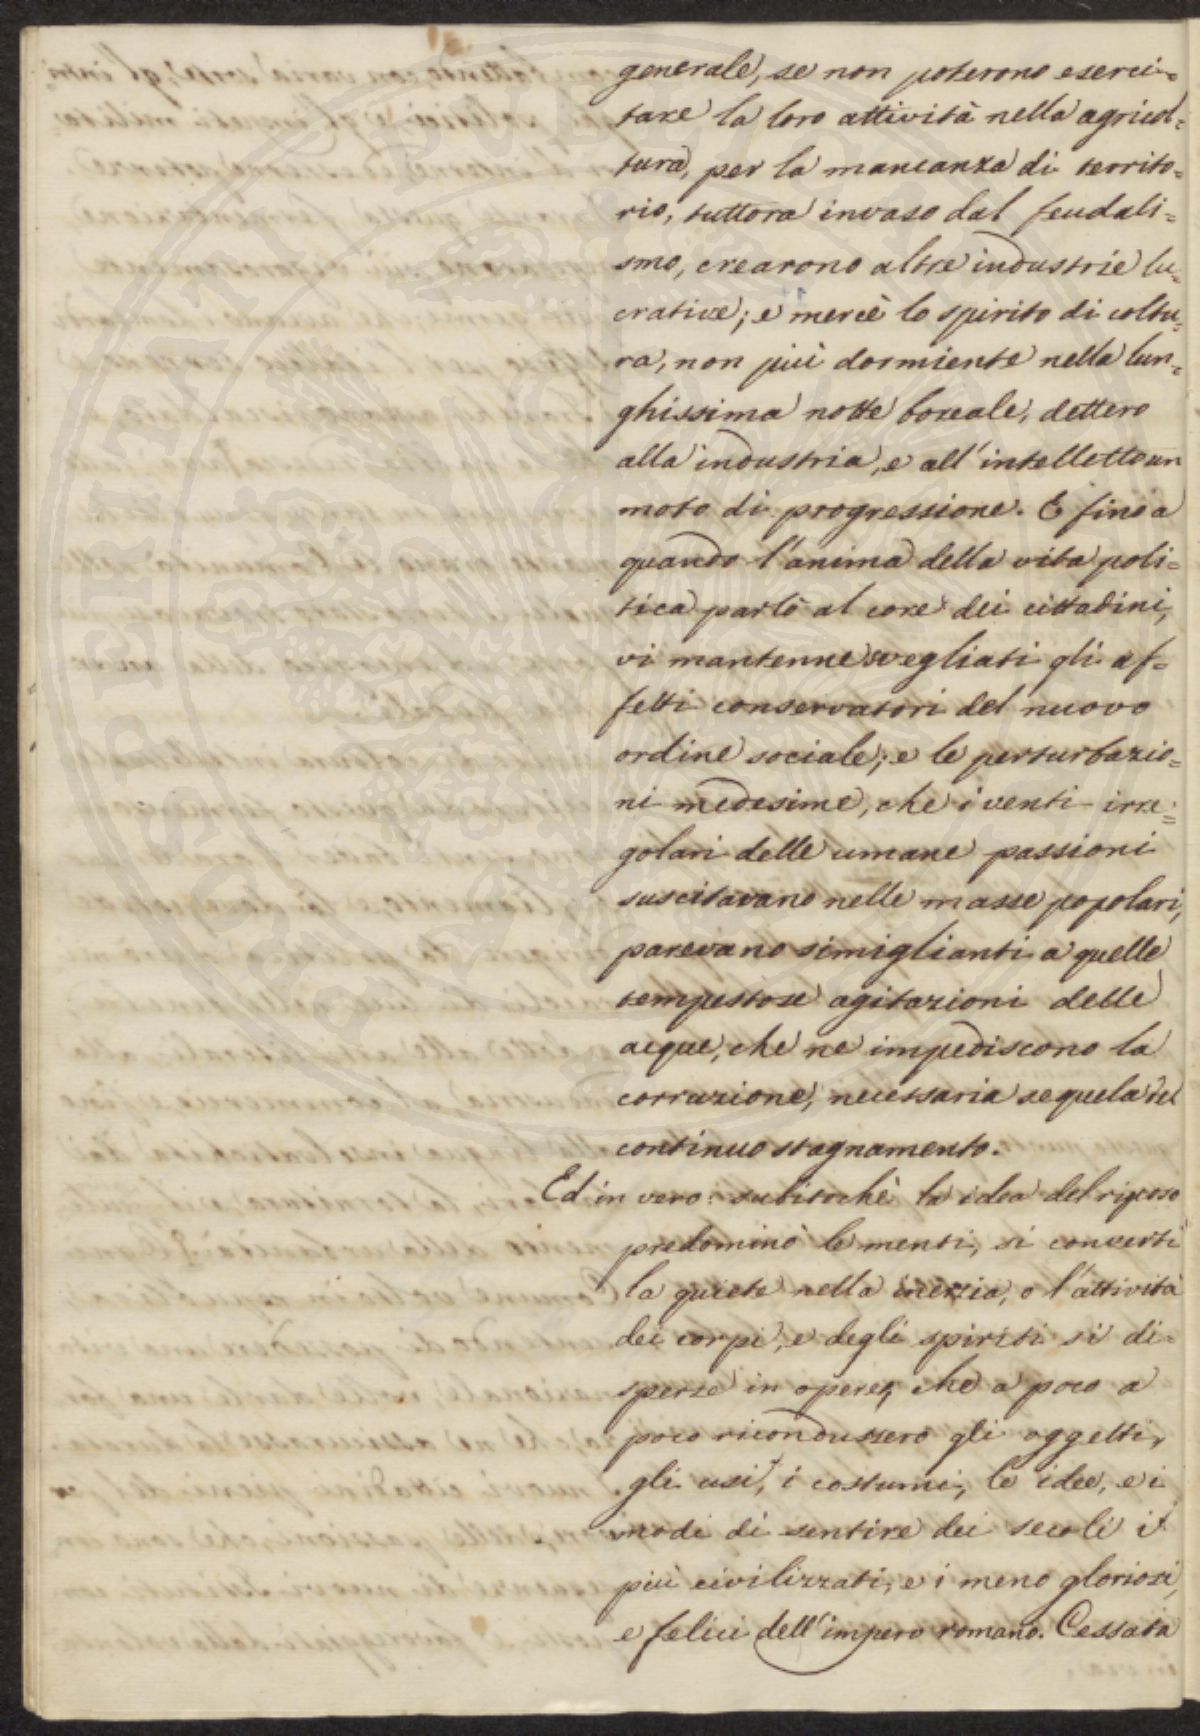 generale, se non poterono eserci=
tare la loro attività nella agricol=
tura, per la mancanza di territo=
rio, tuttora invaso dal feudali=
smo, crearono altre industrie lu=
crative; e mercè lo spirito di coltu=
ra, non più dormiente nella lun=
ghissima notte boreale, dettero
alla industria, e all'intelletto un
moto di progressione. E fino a
quando l'anima della vita poli=
tica parlò al core dei cittadini,
vi mantenne svegliati gli af=
fetti conservatori del nuovo
ordine sociale; e le perturbazio=
ni medesime, che i venti irre=
golari delle umane passioni
suscitavano nelle masse popolari,
parevano simiglianti a quelle
tempestose agitazioni delle
acque, che ne impediscono la
corruzione, necessaria sequela del
continuo stagnamento.
Ed in vero: subitochè la idea del riposo
predominò le menti, si convertì
la quiete nella inerzia, o l'attività
dei corpi, e degli spiriti si di=
sperse in opere, che a poco a
poco ricondussero gli oggetti,
gli usi, i costumi, le idee, e i
modi di sentire dei secoli i
più civilizzati, e i meno gloriosi,
e felici dell'impero romano. Cessata